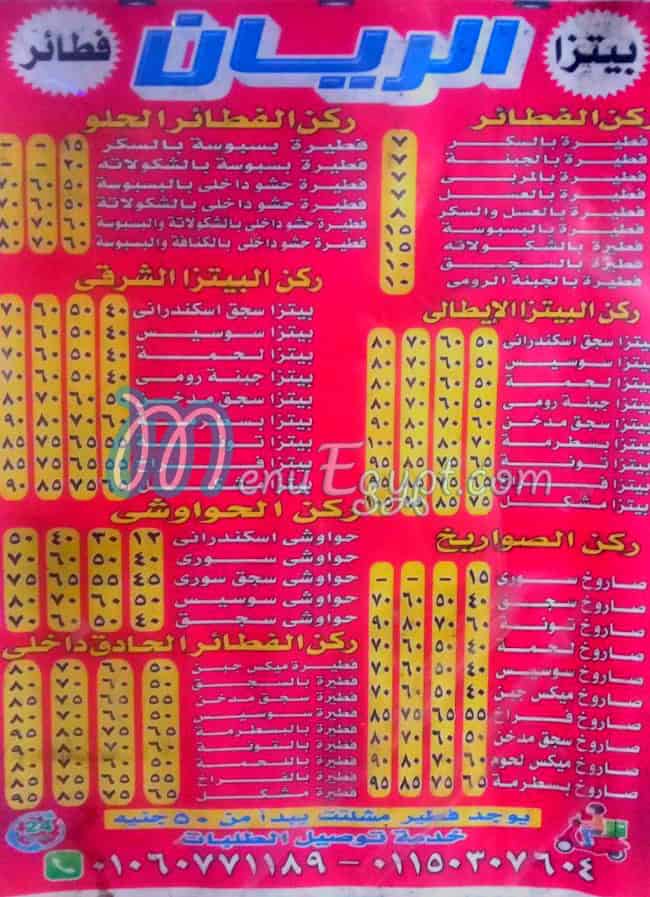 بيتزا
الريان
فطائر
ركن الفطائر
فطيرة بالسكر ٧
فطيرة بالجبنة ٧
فطيرة بالمربى ٧
فطيرة بالعسل ٧
فطيرة بالعسل والسكر ٨
فطيرة بالبسبوسة ١٥
فطيرة بالشكولاته ١٥
فطيرة بالسجق ١٠
فطيرة بالجبنة الرومى ١٠
ركن الفطائر الحلو
فطيرة بسبوسة بالسكر ١٥ – –
فطيرة بسبوسة بالشكولاته ٢٠ – –
فطيرة حشو داخلى بالبسبوسة ٥٠ ٦٠ ٧٠
فطيرة حشو داخلى بالشكولاتة ٥٠ ٦٠ ٧٠
فطيرة حشو داخلى بالشكولاتة والبسبوسة ٦٠ ٧٠
فطيرة حشو داخلى بالكنافة والبسبوسة ٦٠ ٧٠ ٨٠
ركن البيتزا الإيطالى
بيتزا سجق اسكندرانى ٥٠ ٦٠ ٧٠ ٨٠
بيتزا سوسيس ٥٠ ٦٠ ٧٠ ٨٠
بيتزا لحمة ٥٠ ٦٠ ٧٠ ٨٠
بيتزا جبنة رومى ٥٠ ٦٠ ٧٠ ٨٠
بيتزا سجق مدخن
بيتزا بسطرمة ٧٠ ٨٠ ٩٠ ١٠٠
بيتزا تونة
بيتزا
بيتزا مشكل
ركن البيتزا الشرقى
بيتزا سجق اسكندرانى ٤٠ ٥٠ ٦٠ ٧٠
بيتزا سوسيس ٤٠ ٥٠ ٦٠ ٧٠
بيتزا لحمة ٤٠ ٥٠ ٦٠ ٧٠
بيتزا جبنة رومى ٤٠ ٥٠ ٦٠ ٧٠
بيتزا سجق مدخن
بيتزا
بيتزا
بيتزا
MenuEgypt.com
ركن الحواوشى
حواوشى اسكندرانى ١٢ ٣٠ ٤٠ ٥٠
حواوشى سورى
حواوشى سجق سورى ٤٥ ٥٥ ٦٥ ٧٥
حواوشى سوسيس ٤٠ ٥٠ ٦٠ ٧٠
حواوشى سجق
ركن الصواريخ
صاروخ سورى ١٥ – – –
صاروخ سجق ٤٠ ٥٠ ٦٠ ٧٠
صاروخ تونة
صاروخ لحمة ٤٠ ٥٠ ٦٠ ٧٠
صاروخ سوسيس ٤٠ ٥٠ ٦٠ ٧٠
صاروخ ميكس جبن ٤٠ ٥٠ ٦٠ ٧٠
صاروخ فراخ ٥٥ ٦٥ ٧٥ ٨٥
صاروخ سجق مدخن
صاروخ ميكس لحوم
صاروخ بسطرمة ٦٥ ٧٥ ٨٥ ٩٥
ركن الفطائر الحادق داخلى
فطيرة ميكس جبن ٥٠ ٦٠ ٧٠ ٨٠
فطيرة بالسجق ٥٠ ٦٠ ٧٠ ٨٠
فطيرة سجق مدخن
فطيرة سوسيس ٥٠ ٦٠ ٧٠ ٨٠
فطيرة بالبسطرمة
فطيرة بالتونة
فطيرة باللحمة
فطيرة بالفراخ
فطيرة مشكل ٦٥ ٧٥ ٨٥ ٩٥
يوجد فطير مشلتت يبدأ من ٥٠ جنيه
خدمة توصيل الطلبات
٠١٠٦٠٧٧١١٨٩ - ٠١١٥٠٣٠٧٦٠٤
24